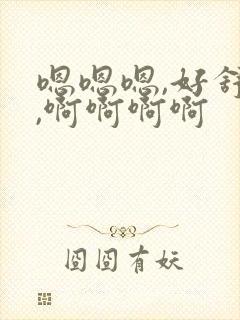 嗯嗯嗯,好舒
,啊啊啊啊
囧囧有妖